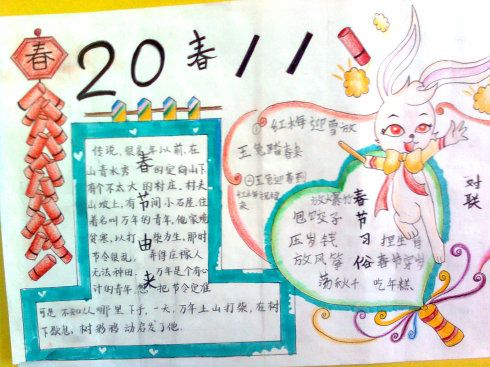 春
20春11
传说，很久以前，在
山青水秀的定向山下
有个不太大的村庄，村夫
山坡上，有间小石屋，住
着名叫万年的青年，他家境
贫寒，以打柴为生，那时
节令很乱，弄得庄稼人
无法种田，万年是个有心
计的青年，想把节令定准
可是不知从哪里下手，一天，万年上山打柴，在树
下歇息，树影移动启发了他。
春节由来
①红梅迎雪放
玉兔踏春来
②玉兔迎春到
红梅祝福来
对联
春节习俗
放爆竹
包饺子
压岁钱
放风筝
荡秋千
吃年糕